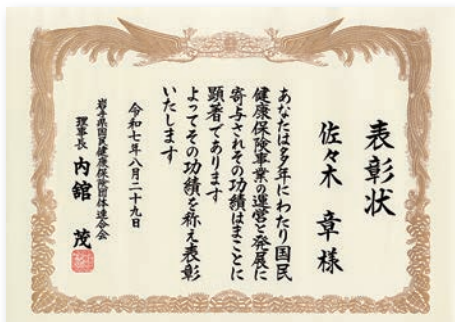 表彰状
佐々木 章 様
あなたは多年にわたり国民
健康保険事業の運営と発展に
寄与されその功績はまことに
顕著であります
よってその功績を称え表彰
いたします
令和七年八月二十九日
岩手県国民健康保険団体連合会
理事長 内舘 茂